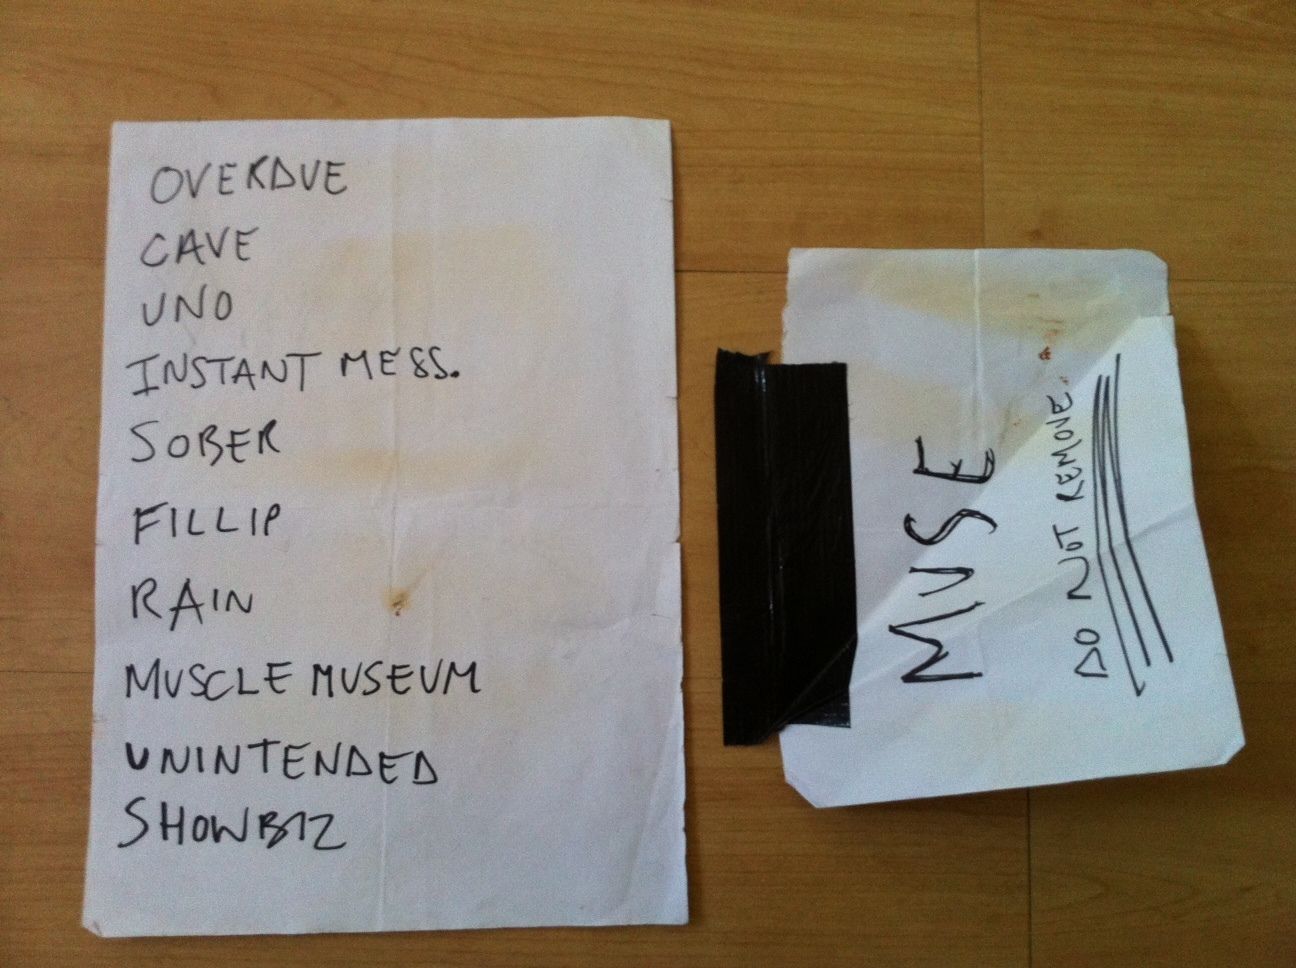 OVERDUE
CAVE
UNO
INSTANT MESS.
SOBER
FILLIP
RAIN
MUSCLE MUSEUM
UNINTENDED
SHOWBIZ
MUSE
DO NOT REMOVE.